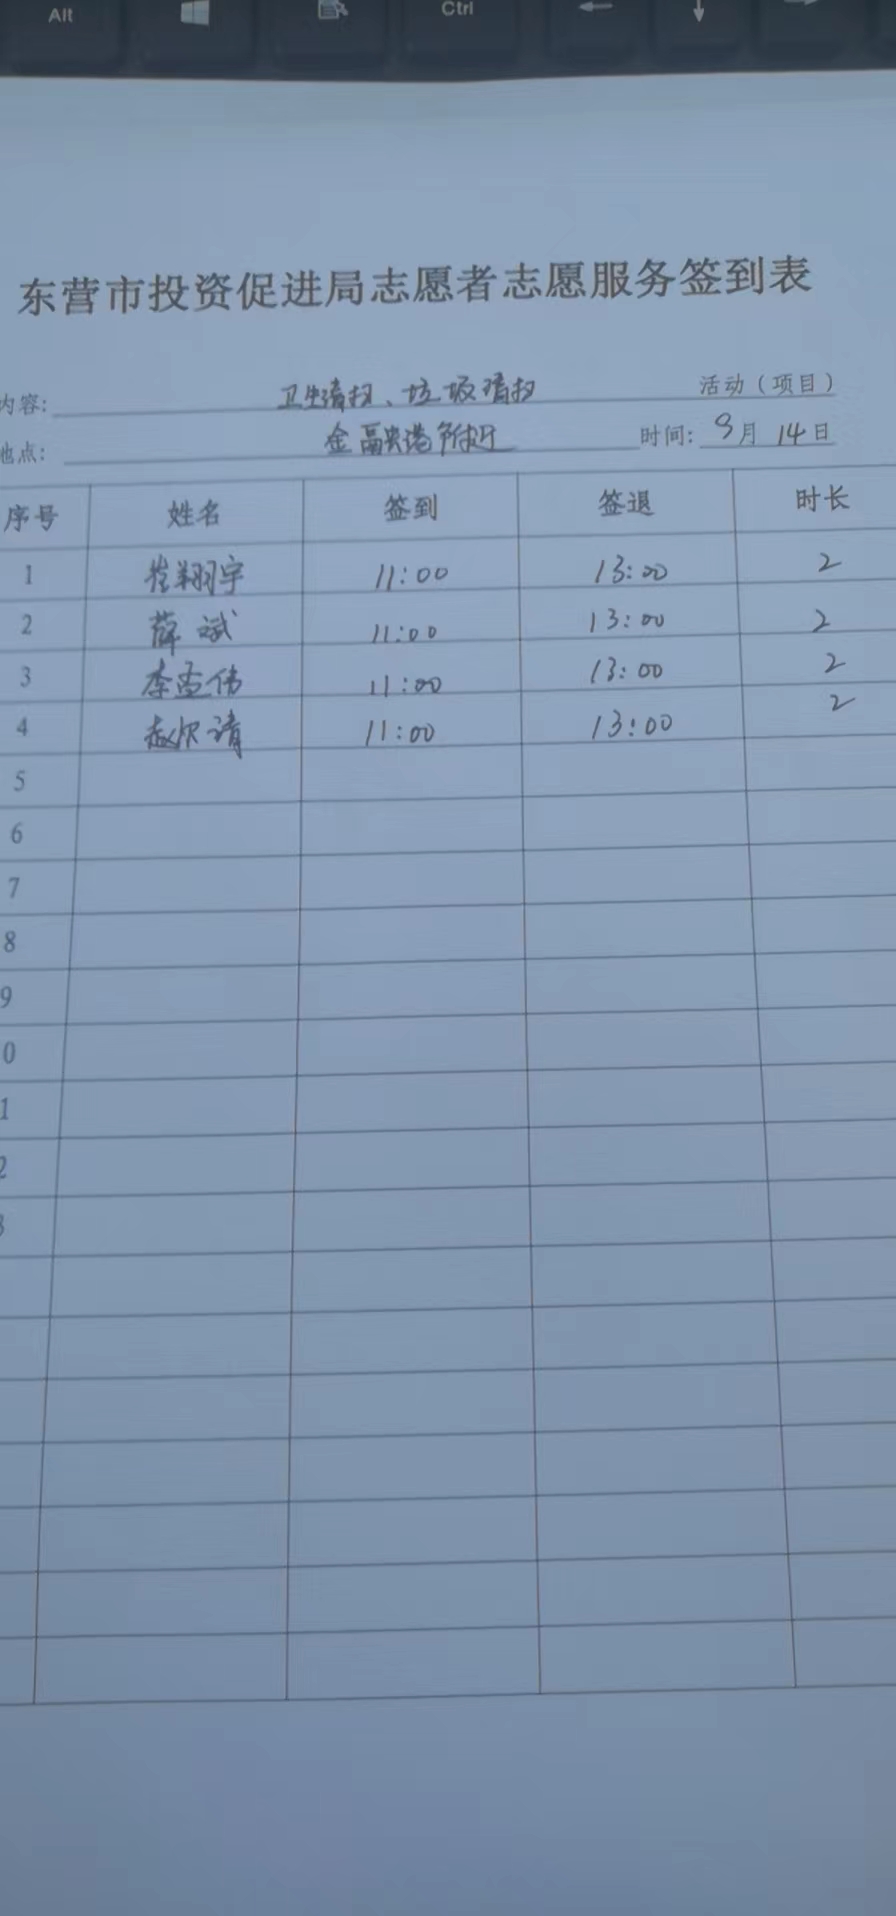 Alt
Ctrl
东营市投资促进局志愿者志愿服务签到表
内容: 卫生清扫、垃圾清扫 活动(项目)
地点: 金融港附近 时间: 9月14日
序号 姓名 签到 签退 时长
1 崔翔宇 11:00 13:00 2
2 薛斌 11:00 13:00 2
3 李孟伟 11:00 13:00 2
4 11:00 13:00 2
5
6
7
8
9
0
1
2
3